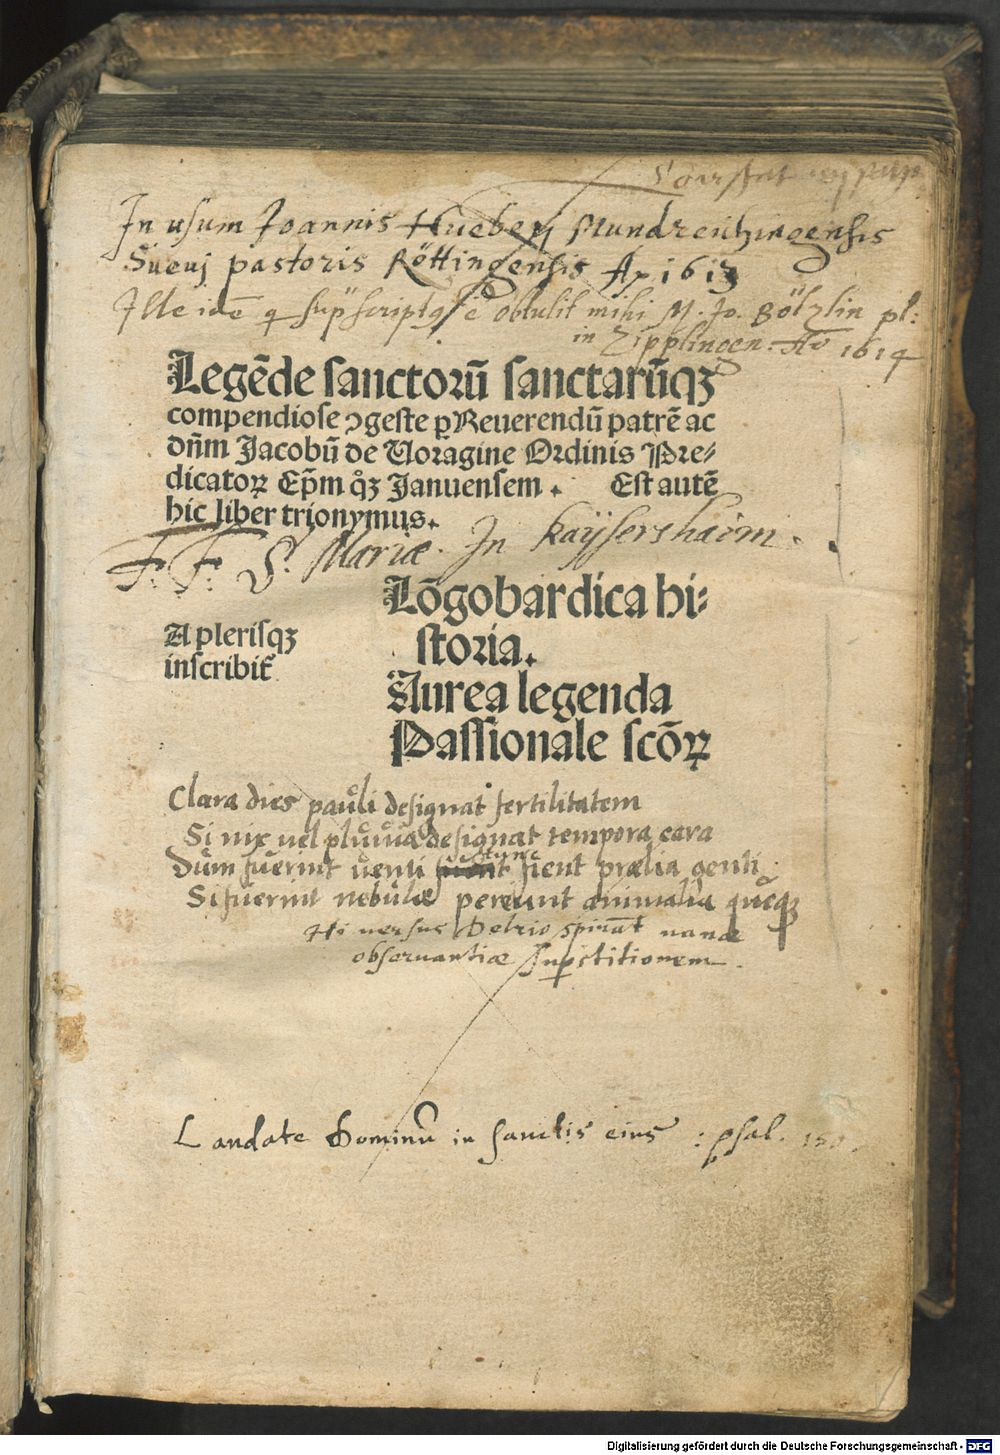 Constat
In usum Joannis Hueberj Mundrichingensis
Sueuj pastoris Röttingensis Aº 1613
Ille idē q̄ supscriptꝰ ē obtulit mihi M. Jo. Bölzlin pl:
in Zipplingen. Aº 1614
Legēde sanctorū sanctarūqꝫ
compendiose ↄgeste ꝑ Reuerendū patrē ac
dn̄m Jacobū de Uoragine Ordinis Pre⸗
dicatoꝝ Ep̄m qͦꝫ Januensem. Est autē
hic liber trionymus.
F. F. S. Mariæ. In Kaysershaim.
Lōgobardica hi⸗
storia.
A plerisqꝫ
inscribit̄
Aurea legenda
Passionale scōꝝ
Clara dies pauli designat fertilitatem
Si nix uel pluuia designat tempora cara
Dum fuerint uenti fient prælia genti
Si fuerint nebulæ pereunt animalia quęqꝫ
Hi uersus Delrio spirāt uanæ
obseruantiæ suꝑstitionem.
Laudate Dominū in sanctis eius : psal. 150.
Digitalisierung gefördert durch die Deutsche Forschungsgemeinschaft - DFG